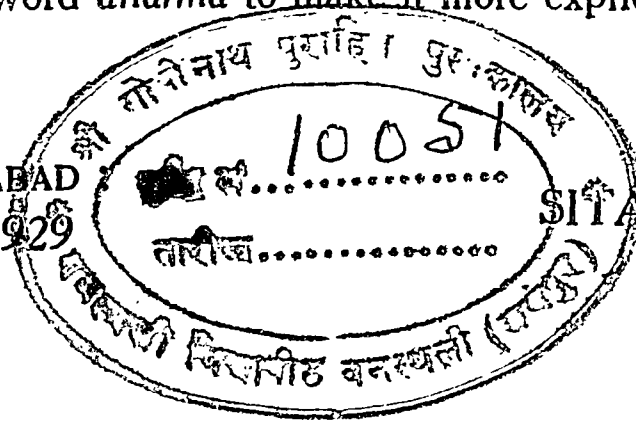 word dharma to make it more explic
श्री गोपीनाथ पुरोहित पुस्तकालय
ABAD :
929
SITA
सं. 10051
तारीख
विद्यापीठ वनस्थली (जयपुर)